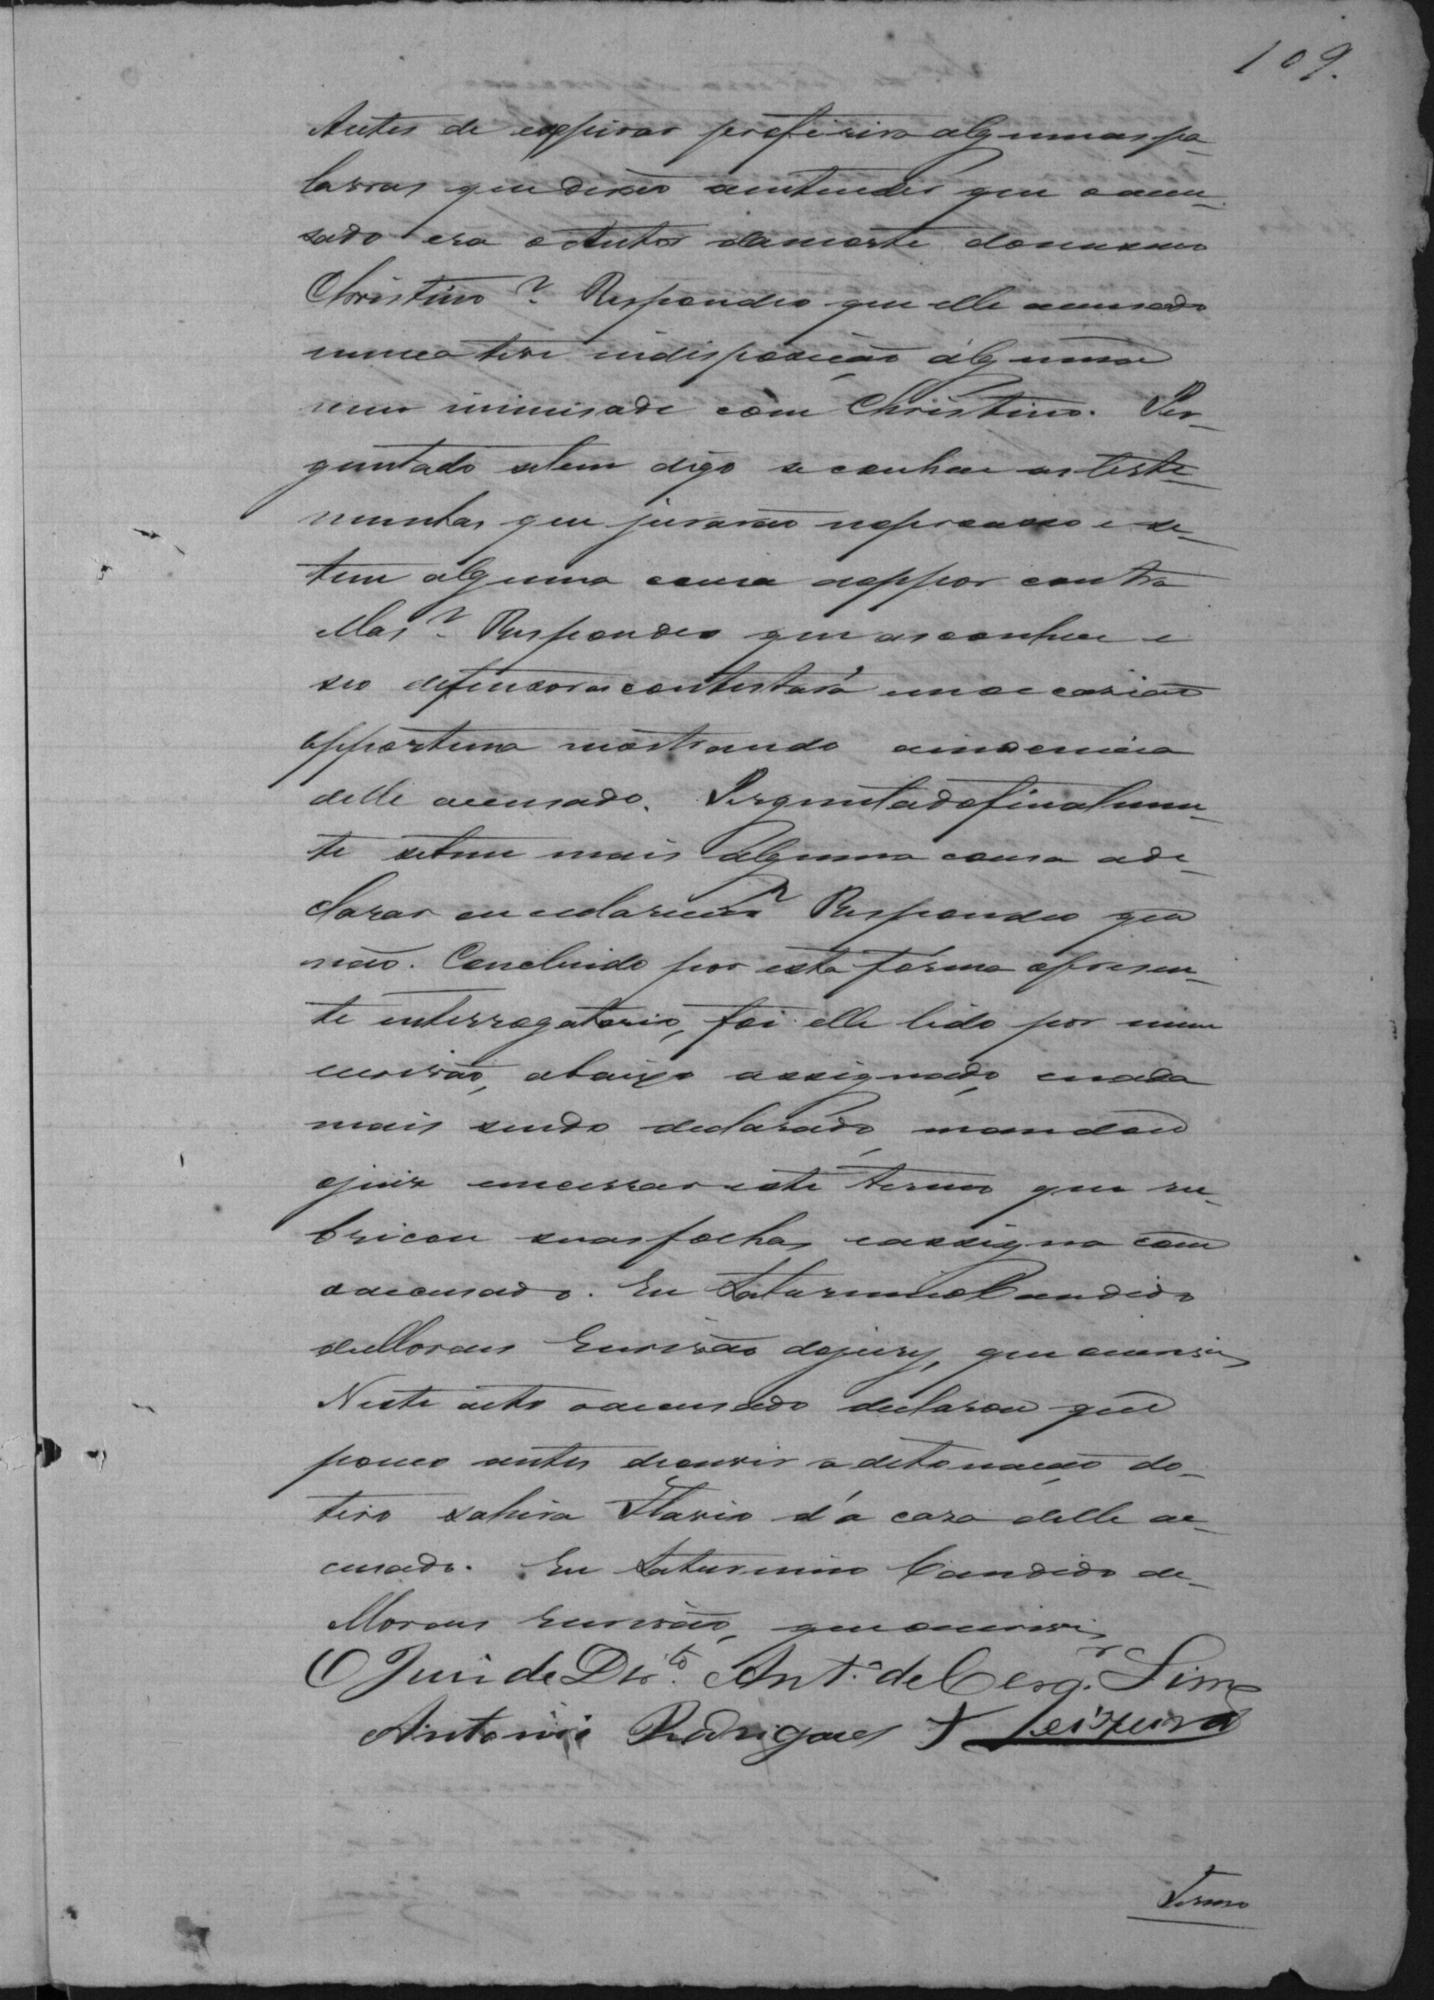 109.
Antes de expirar proferira algumas pa-
lavras que derão aentender que o accu-
sado era o Autor damorte domesmo
Christino? Respondeo que elle accusado
nunca teve indisposição alguma
nem inimisade com Christino. Per-
guntado setem digo se conhece as teste-
munhas que jurarão noprocesso e se-
tem alguma cousa aoppor contra
ellas? Respondeo que asconhece e
seo defensor as contestará em occasião
opportuna mostrando ainnocencia
delle accusado. Perguntado finalmen-
te setem mais alguma cousa a de-
clarar ou esclarecer? Respondeo que
não. Concluido por esta fórma opresen-
te interrogatorio, foi elle lido por mim
escrivão, abaixo assignado, enada
mais sendo declarado, mandou
ojuiz encerrar este termo que ru-
bricou suas folhas, e assigna com
oaccusado. Eu Saturnino Candido
de Moraes Escrivão dojury, que escrevi
Neste acto oaccusado declarou que
pouco antes deouvir a detonação do-
tiro sahira Flavio d'a casa delle ac-
cusado. Eu Saturnino Candido de-
Moraes Escrivão, que escrevi
O Juis de Dir.to Ant.o de Cerq.r Lima
Antonio Rodrigues Teixeira
Termo